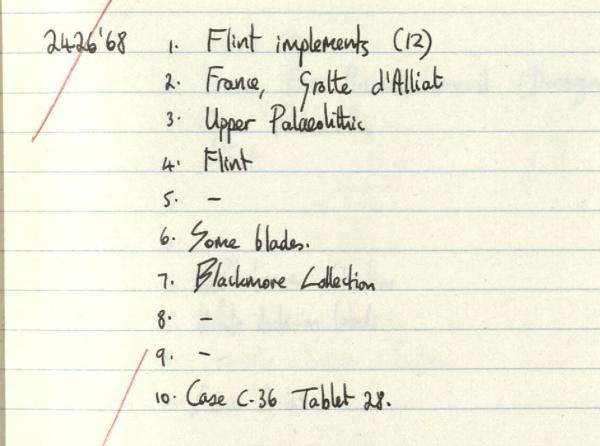 2426'68 1. Flint implements (12)
2. France, Grotte d'Alliat
3. Upper Palaeolithic
4. Flint
5. -
6. Some blades.
7. Blackmore Collection
8. -
9. -
10. Case C-36 Tablet 28.